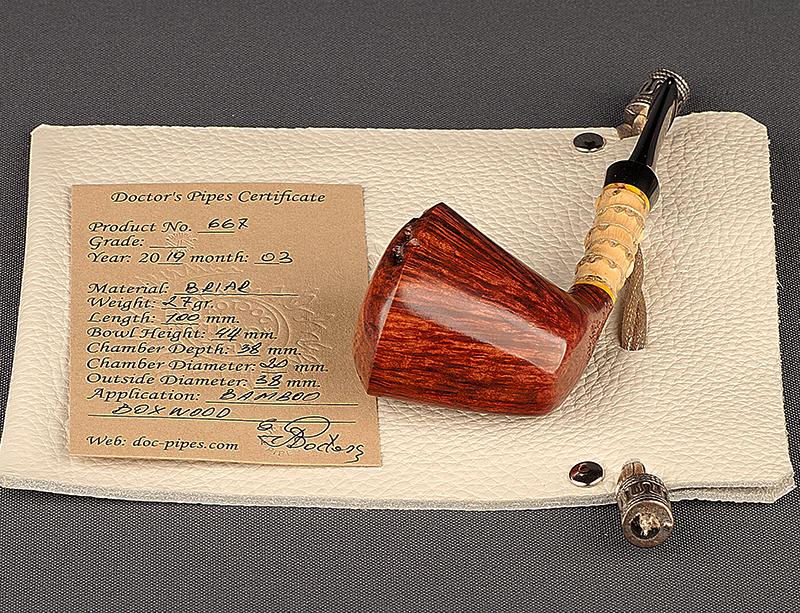 Doctor's Pipes Certificate
Product No. 667
Grade:
Year: 2019 month: 03
Material: BRIAR
Weight: 27gr.
Length: 100 mm.
Bowl Height: 44 mm.
Chamber Depth: 38 mm.
Chamber Diameter: 20 mm.
Outside Diameter: 38 mm.
Application: BAMBOO
BOXWOOD
Web: doc-pipes.com